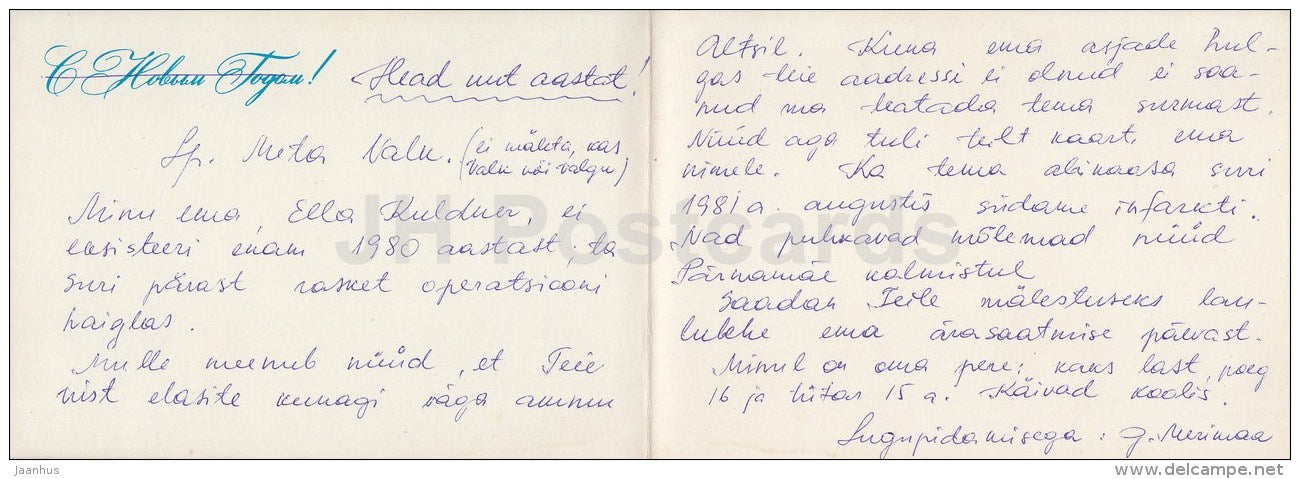 С Новым Годом!
Head uut aastat!
Sp. Meta Valk. (ei mäleta, kas
Valk või Valgu)
Minu ema, Ella Kuldner, ei
eksisteeri enam 1980 aastast, ta
suri pärast rasket operatsiooni
haiglas.
Mulle meenub nüüd, et Teie
vist elasite kunagi väga ammu
Kuna ema asjade hul-
gas teie aadressi ei olnud ei saa-
nud ma teatada tema surmast.
Nüüd aga tuli teilt kaart ema
nimele. Ka tema abikaasa suri
1981 a. augustis südame infarkti.
Nad puhkavad mõlemad nüüd
Pärnamäe kalmistul
Saadan Teile mälestuseks lau-
lukehe ema ärasaatmise päevast.
Minul on oma pere: kaks last, poeg
16 ja tütar 15 a. Käivad koolis.
Lugupidamisega: J. Merimaa
JH Postcards
jaanhus
www.delcampe.net